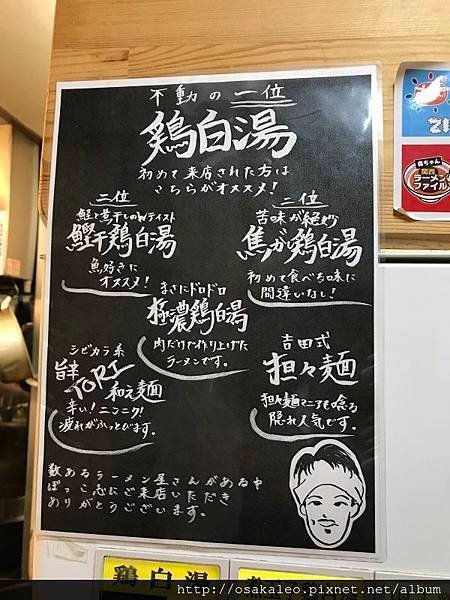 不動の一位
鶏白湯
初めて来店された方は
こちらがオススメ!
二位
鰹と煮干しのWテイスト
鰹干鶏白湯
魚好きに
オススメ!
二位
苦味が絶妙
焦がし鶏白湯
初めて食べる味に
間違いなし!
まさにドロドロ
極濃鶏白湯
肉だけで作り上げた
ラーメンです。
シビカラ系
旨辛
TORI
和え麺
辛い!ニンニク!
疲れがふっとびます。
吉田式
担々麺
担々麺マニアも唸る
隠れ人気です。
数あるラーメン屋さんがある中
ぼっこ志にご来店いただき
ありがとうございます。
関西
ラーメン
ファイル
鶏白湯
http://osakaleo.pixnet.net/album